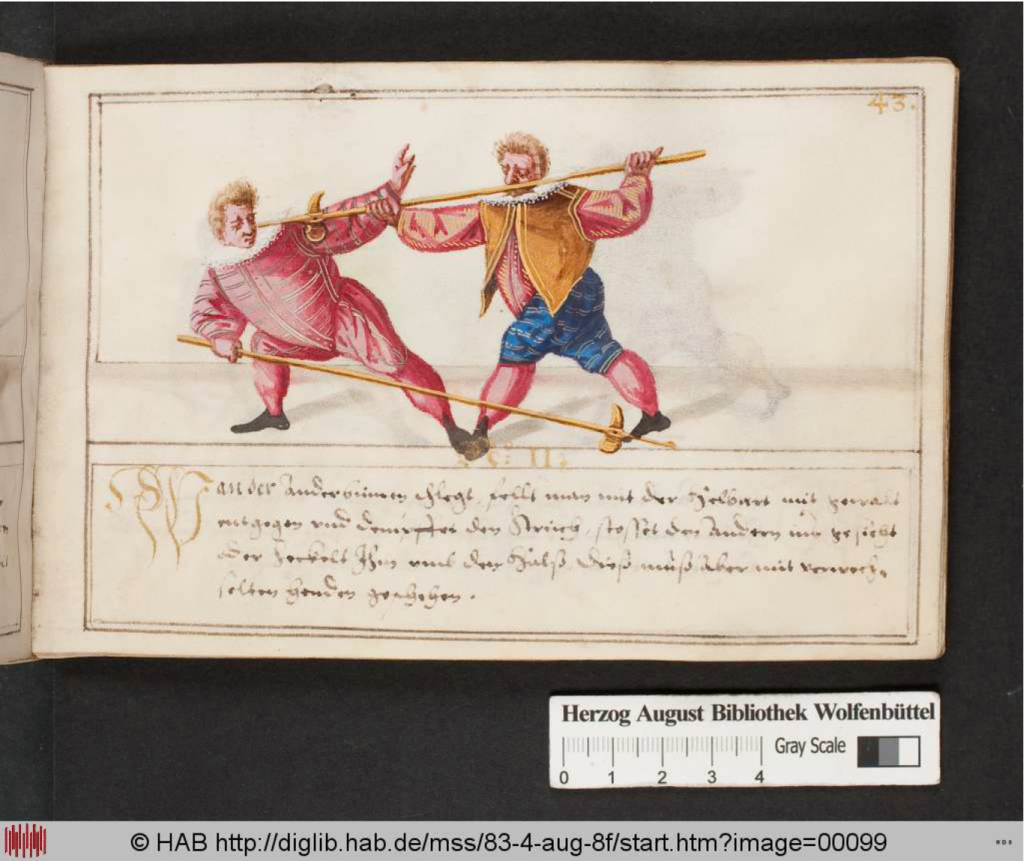 43.
XXII:
Wan der Ander hinnein schlegt, fellt man mit der Helbart mit gewalt
entgegen vnd dempffet den streich, stosset den Andern ins gesicht
oder heckelt Ihm vmb den Halß, Dieß muß Aber mit verwech-
selten henden geschehen.
Herzog August Bibliothek Wolfenbüttel
Gray Scale
0 1 2 3 4
© HAB http://diglib.hab.de/mss/83-4-aug-8f/start.htm?image=00099